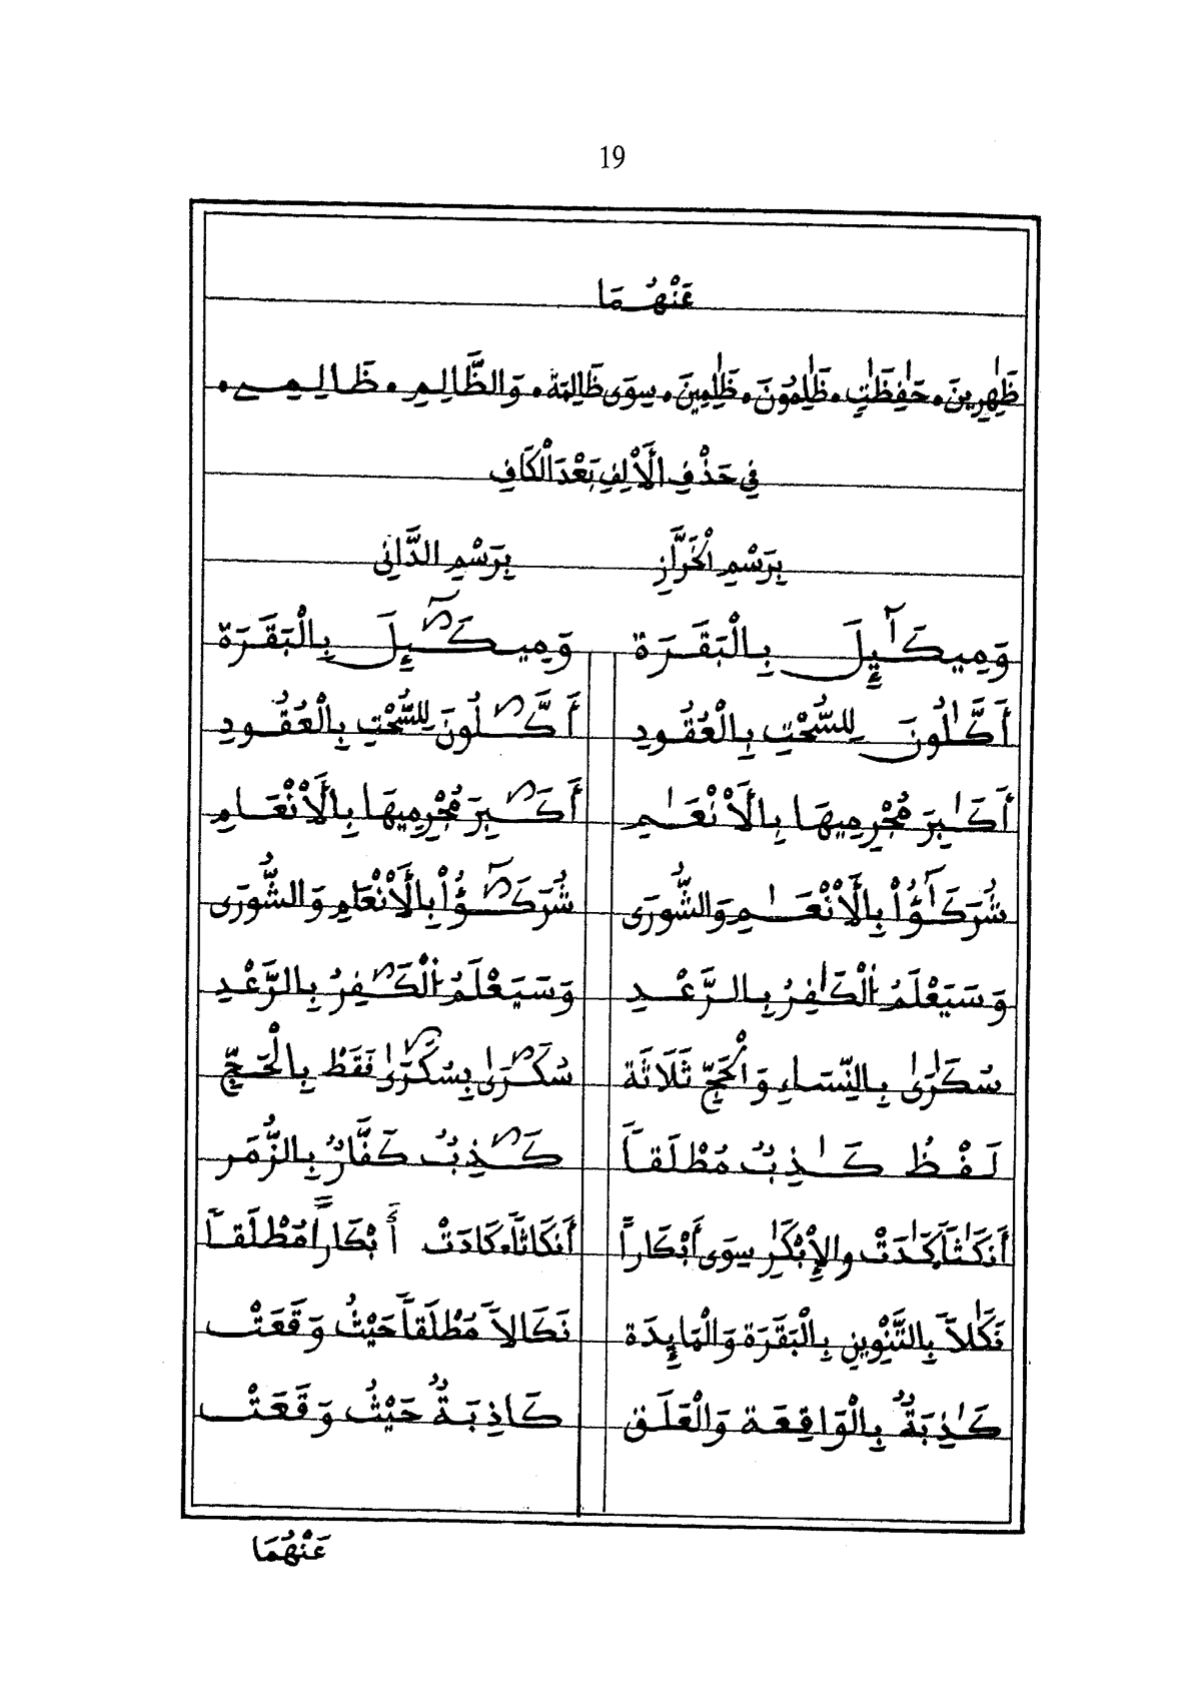 19
عَنْهُمَا
ظَٰهِرِينَ. حَٰفِظَٰتٍ. ظَٰلِمُونَ. ظَٰلِمِينَ. سِوَى ظَالِمَةٌ. وَالظَّالِمِ. ظَالِمِے.
فِي حَذْفِ الْأَلِفِ بَعْدَ الْكَافِ
بِرَسْمِ الْخَرَّازِ بِرَسْمِ الدَّانِي
وَمِيكَآئِلَ بِالْبَقَرَة وَمِيكَٰٓئِلَ بِالْبَقَرَة
أَكَّٰلُونَ لِلسُّحْتِ بِالْعُقُودِ أَكَّٰلُونَ لِلسُّحْتِ بِالْعُقُودِ
أَكَٰبِرَ مُجْرِمِيهَا بِالْأَنْعَٰمِ أَكَٰبِرَ مُجْرِمِيهَا بِالْأَنْعَامِ
شُرَكَٰٓؤُاْ بِالْأَنْعَٰمِ وَالشُّورَى شُرَكَٰٓؤُاْ بِالْأَنْعَامِ وَالشُّورَى
وَسَيَعْلَمُ الْكَٰفِرُ بِالرَّعْدِ وَسَيَعْلَمُ الْكَٰفِرُ بِالرَّعْدِ
سُكَٰرَىٰ بِالنِّسَاءِ وَالْحَجِّ ثَلَاثَة سُكَٰرَىٰ بِسُكَٰرَىٰ فَقَطْ بِالْحَجِّ
لَفْظُ كَٰذِبٌ مُطْلَقاً كَٰذِبٌ كَفَّارٌ بِالزُّمَر
أَنكَٰثاً كَٰدَتْ والإِبْكَٰرِ سِوَى أَبْكَاراً أَنكَاثاً. كَادَتْ أَبْكَاراً مُطْلَقاً
نَكَٰلاً بِالتَّنْوِينِ بِالْبَقَرَة وَالْمَائِدَة نَكَالاً مُطْلَقاً حَيْثُ وَقَعَتْ
كَٰذِبَةٌ بِالْوَاقِعَة وَالْعَلَق كَاذِبَةٌ حَيْثُ وَقَعَتْ
عَنْهُمَا